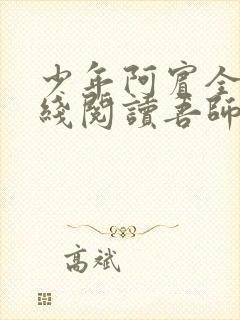 少年阿賓全
綫閱讀吾師
高斌